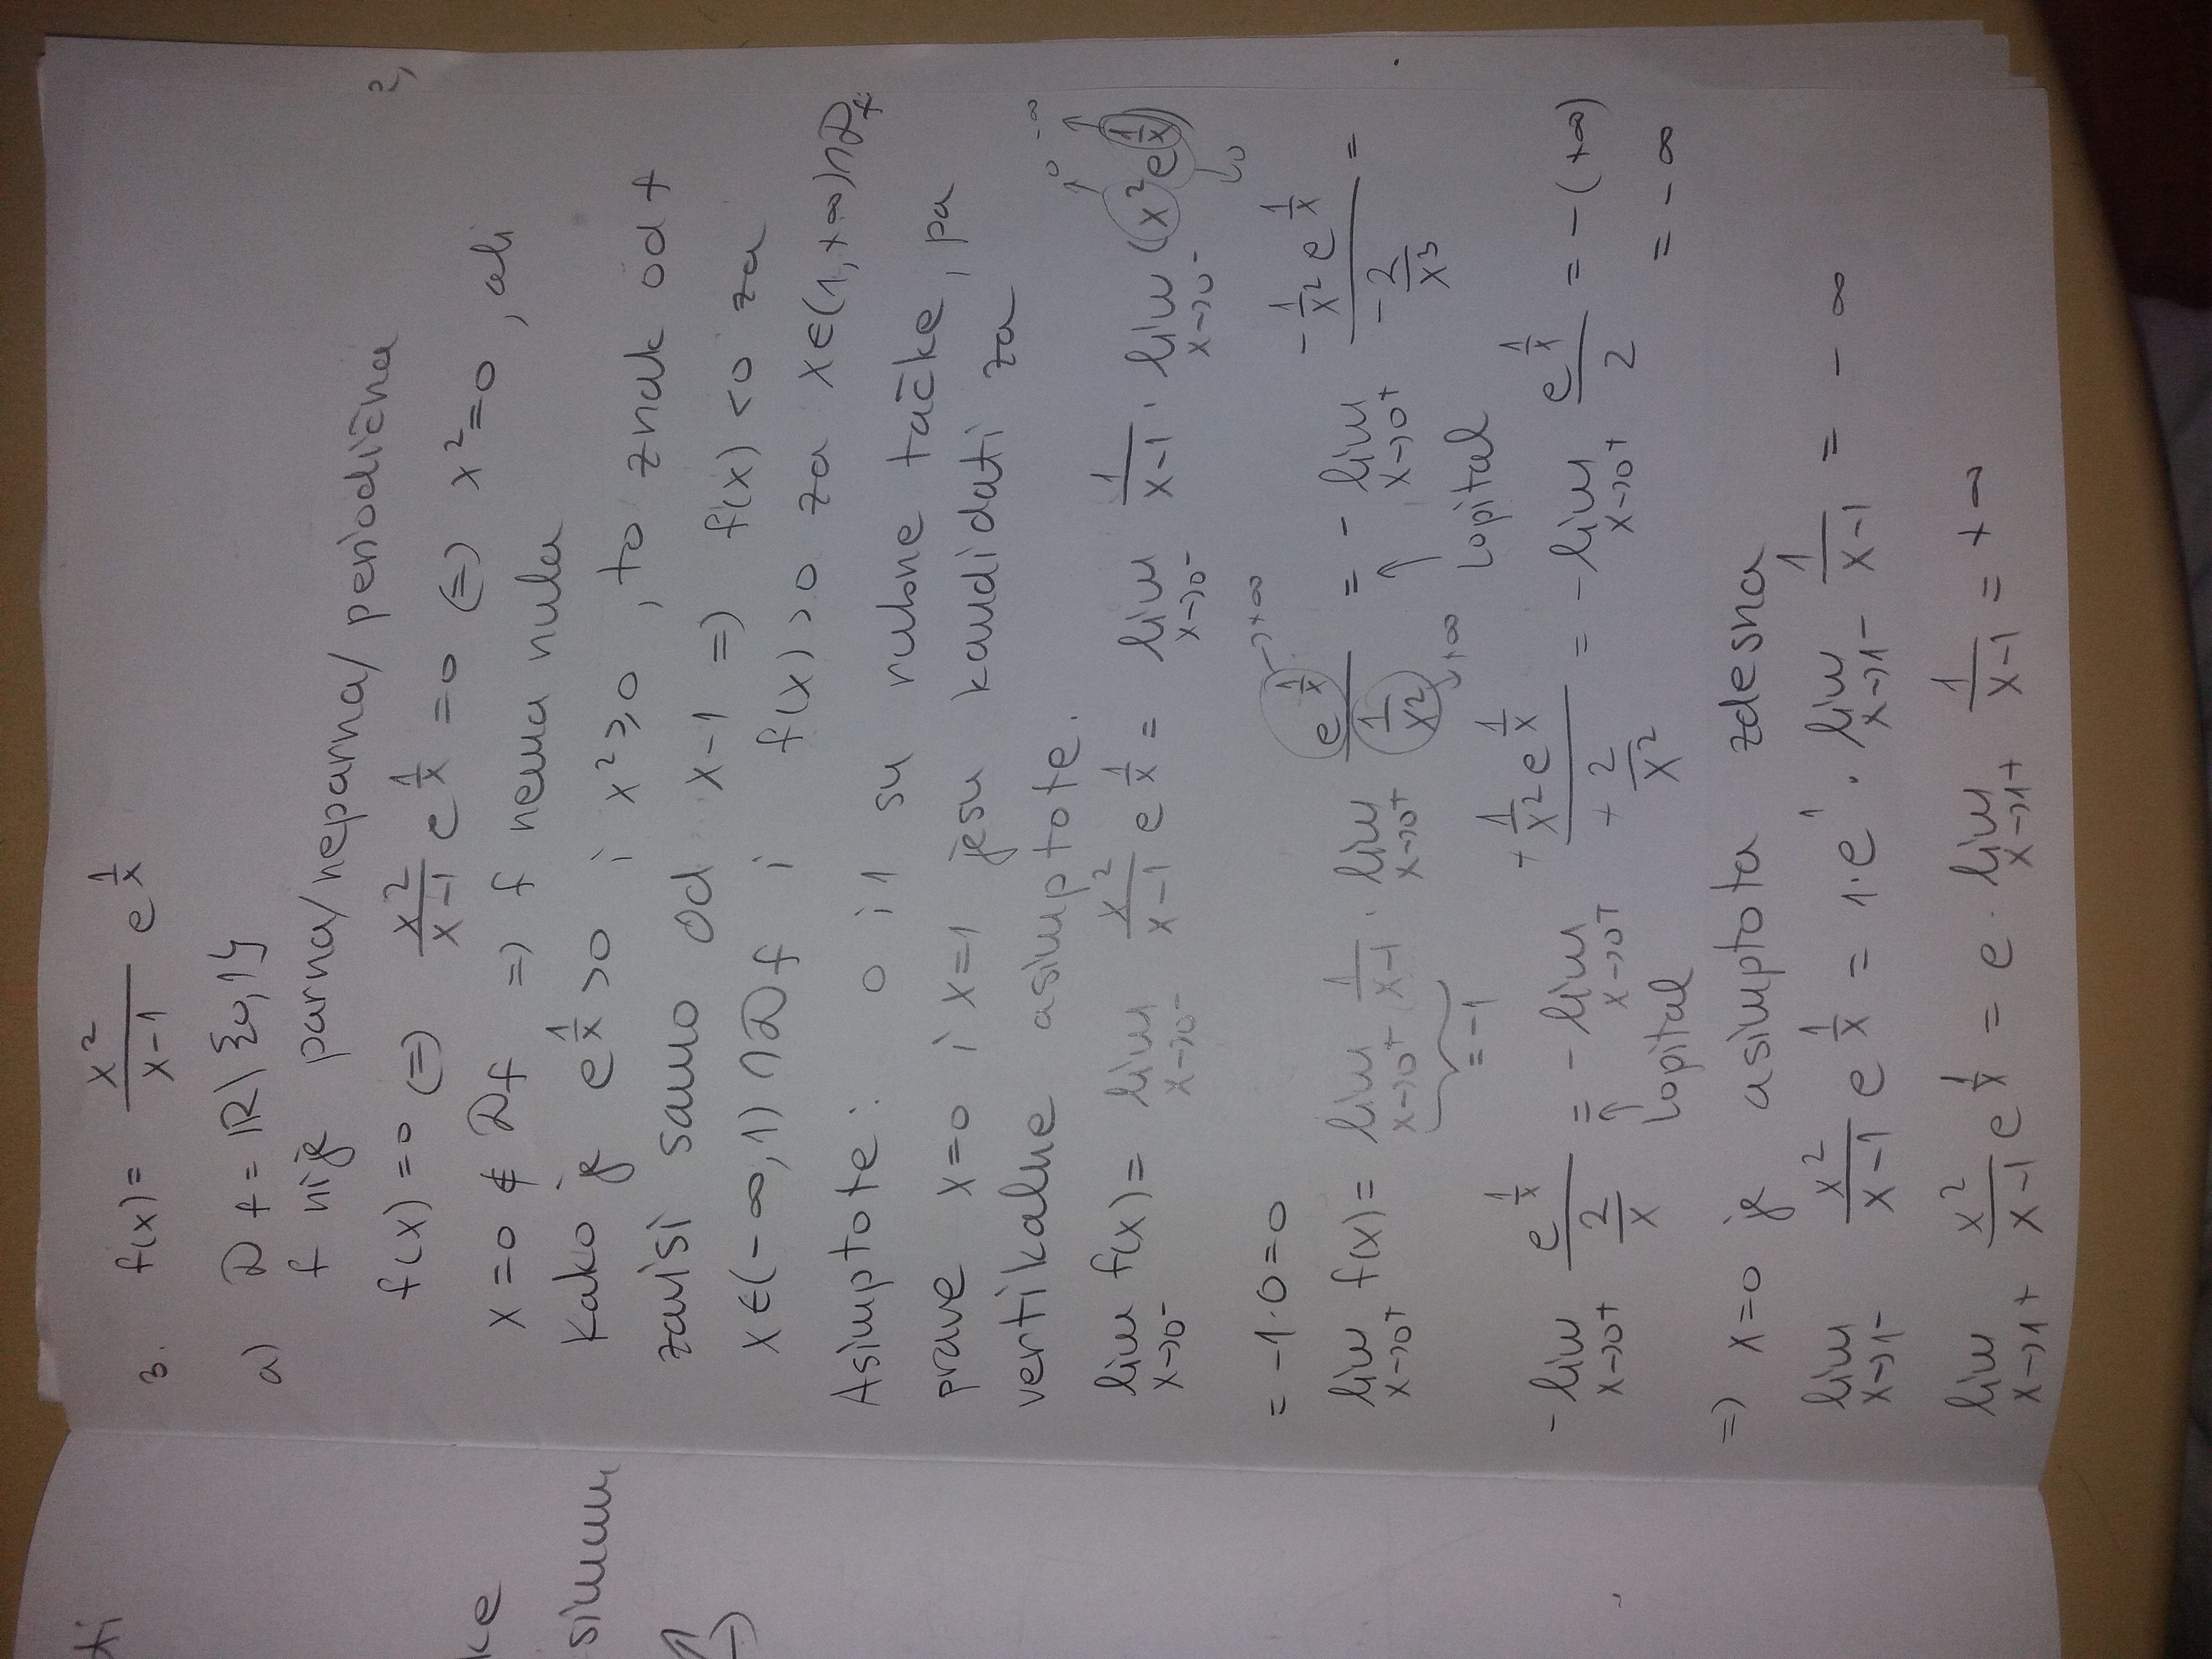 ti
ke
simum
3. f(x) = x²/(x-1) e^(1/x)
a) Df = ℝ\{0,1}
f nije parna/neparna/periodična
f(x)=0 (=) x²/(x-1) e^(1/x) = 0 (=) x²=0, ali
x=0 ∉ Df =) f nema nula
Kako je e^(1/x) >0 i x²≥0, to znak od f
zavisi samo od x-1 =) f(x) <0 za
x∈(-∞,1)∩Df i f(x)>0 za x∈(1,+∞)∩Df
Asimptote: 0 i 1 su rubne tačke, pa
prave x=0 i x=1 jesu kandidati za
vertikalne asimptote.
→0 →-∞
lim x→0- f(x) = lim x→0- x²/(x-1) e^(1/x) = lim x→0- 1/(x-1) · lim x→0- (x² e^(1/x))
→0
= -1·0=0
lim x→0+ f(x) = lim x→0+ 1/(x-1) · lim x→0+ e^(1/x) →+∞ / (1/x²) →+∞ = - lim x→0+ (-1/x² e^(1/x))/(-2/x³) =
= -1 Lopital
-lim x→0+ e^(1/x)/(2/x) = -lim x→0+ (+1/x² e^(1/x))/(+2/x²) = -lim x→0+ e^(1/x)/2 = -(+∞)
Lopital = -∞
=) x=0 je asimptota zdesna
lim x→1- x²/(x-1) e^(1/x) = 1·e¹ · lim x→1- 1/(x-1) = -∞
lim x→1+ x²/(x-1) e^(1/x) = e · lim x→1+ 1/(x-1) = +∞